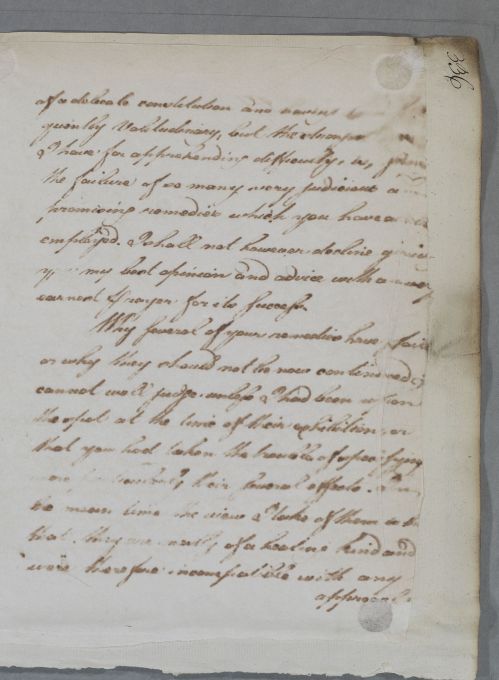 336
of a delicate constitution and having
quently Valetudinary, but the strongest
I have for apprehending difficulty, is, from
the failure of so many very judicious and
promising remedies which you have
employed. I shall not however decline giving
you my best opinion and advice with a very
earnest prayer for its success.
Why several of your remedies have fail
or why they should not be now continued, I
cannot well judge unless I had been upon
the spot at the time of their exhibition, or
that you had taken the trouble of specifying
more their several effects. In
the mean time the view I take of them is
that they are mostly of a healing kind and
were therefore incompatible with any